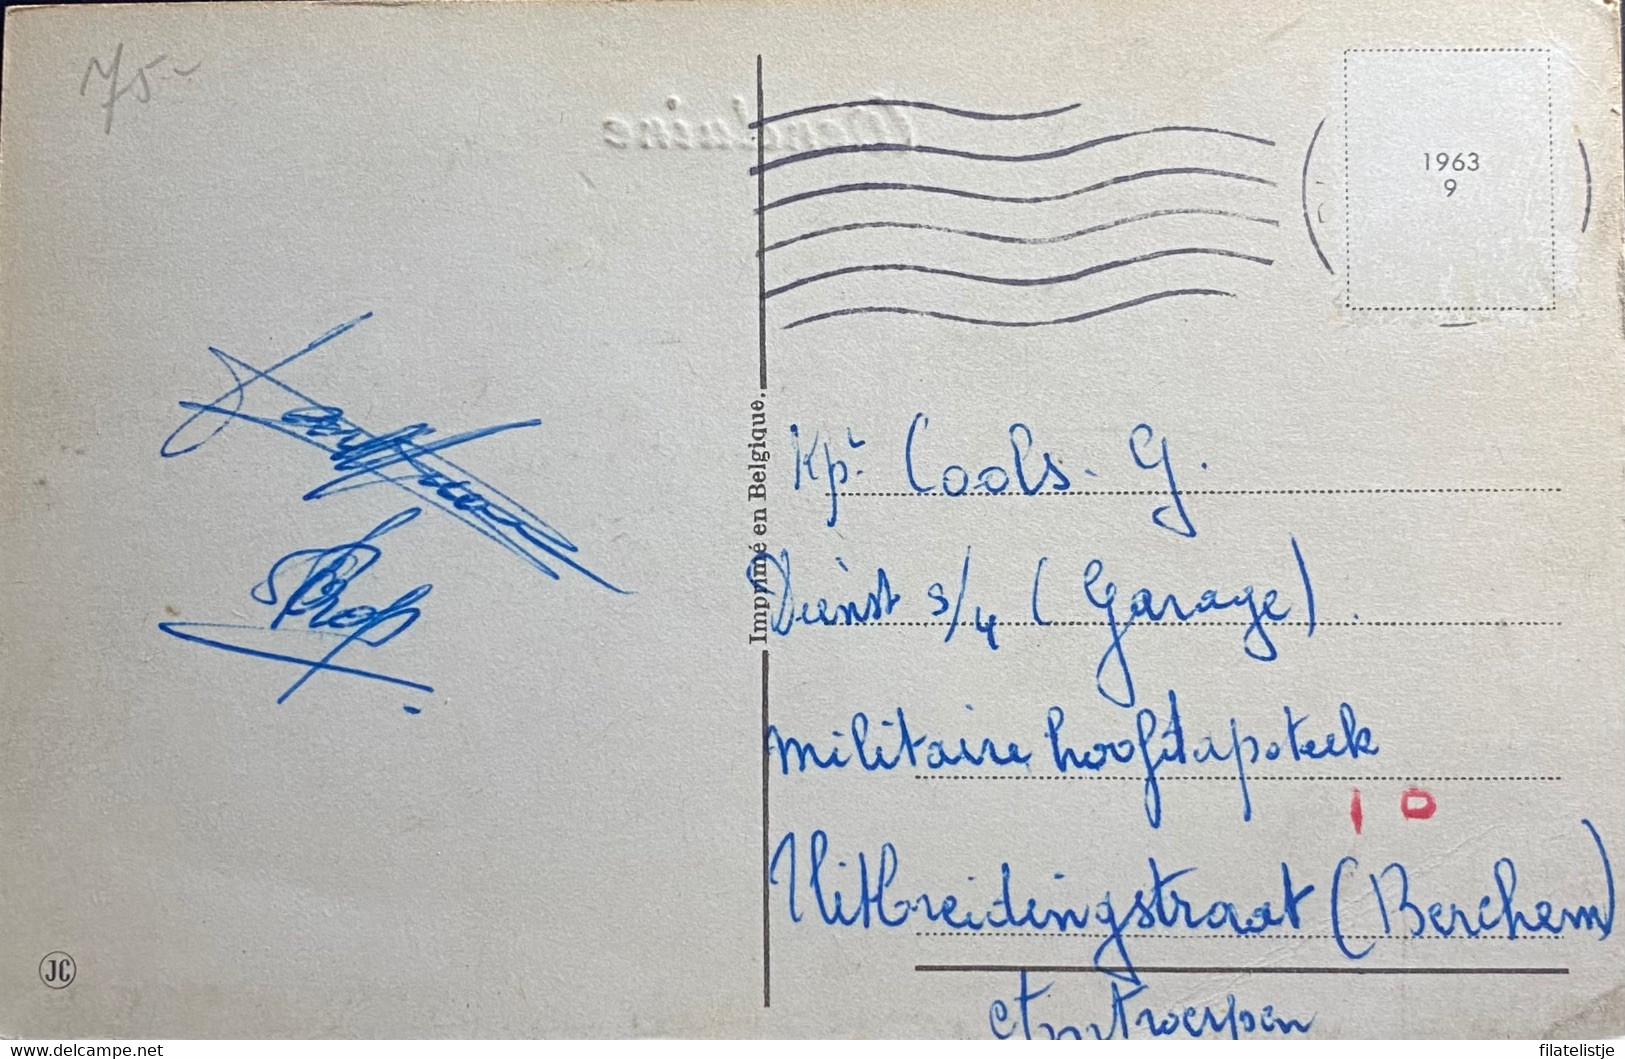 75-
1963
9
Imprimé en Belgique.
Kpl Cools. G.
Dienst s/4 (Garage).
militaire hoofdapoteek
10
Uitbreidingstraat (Berchem)
Antwerpen
JC
delcampe.net
filatelistje